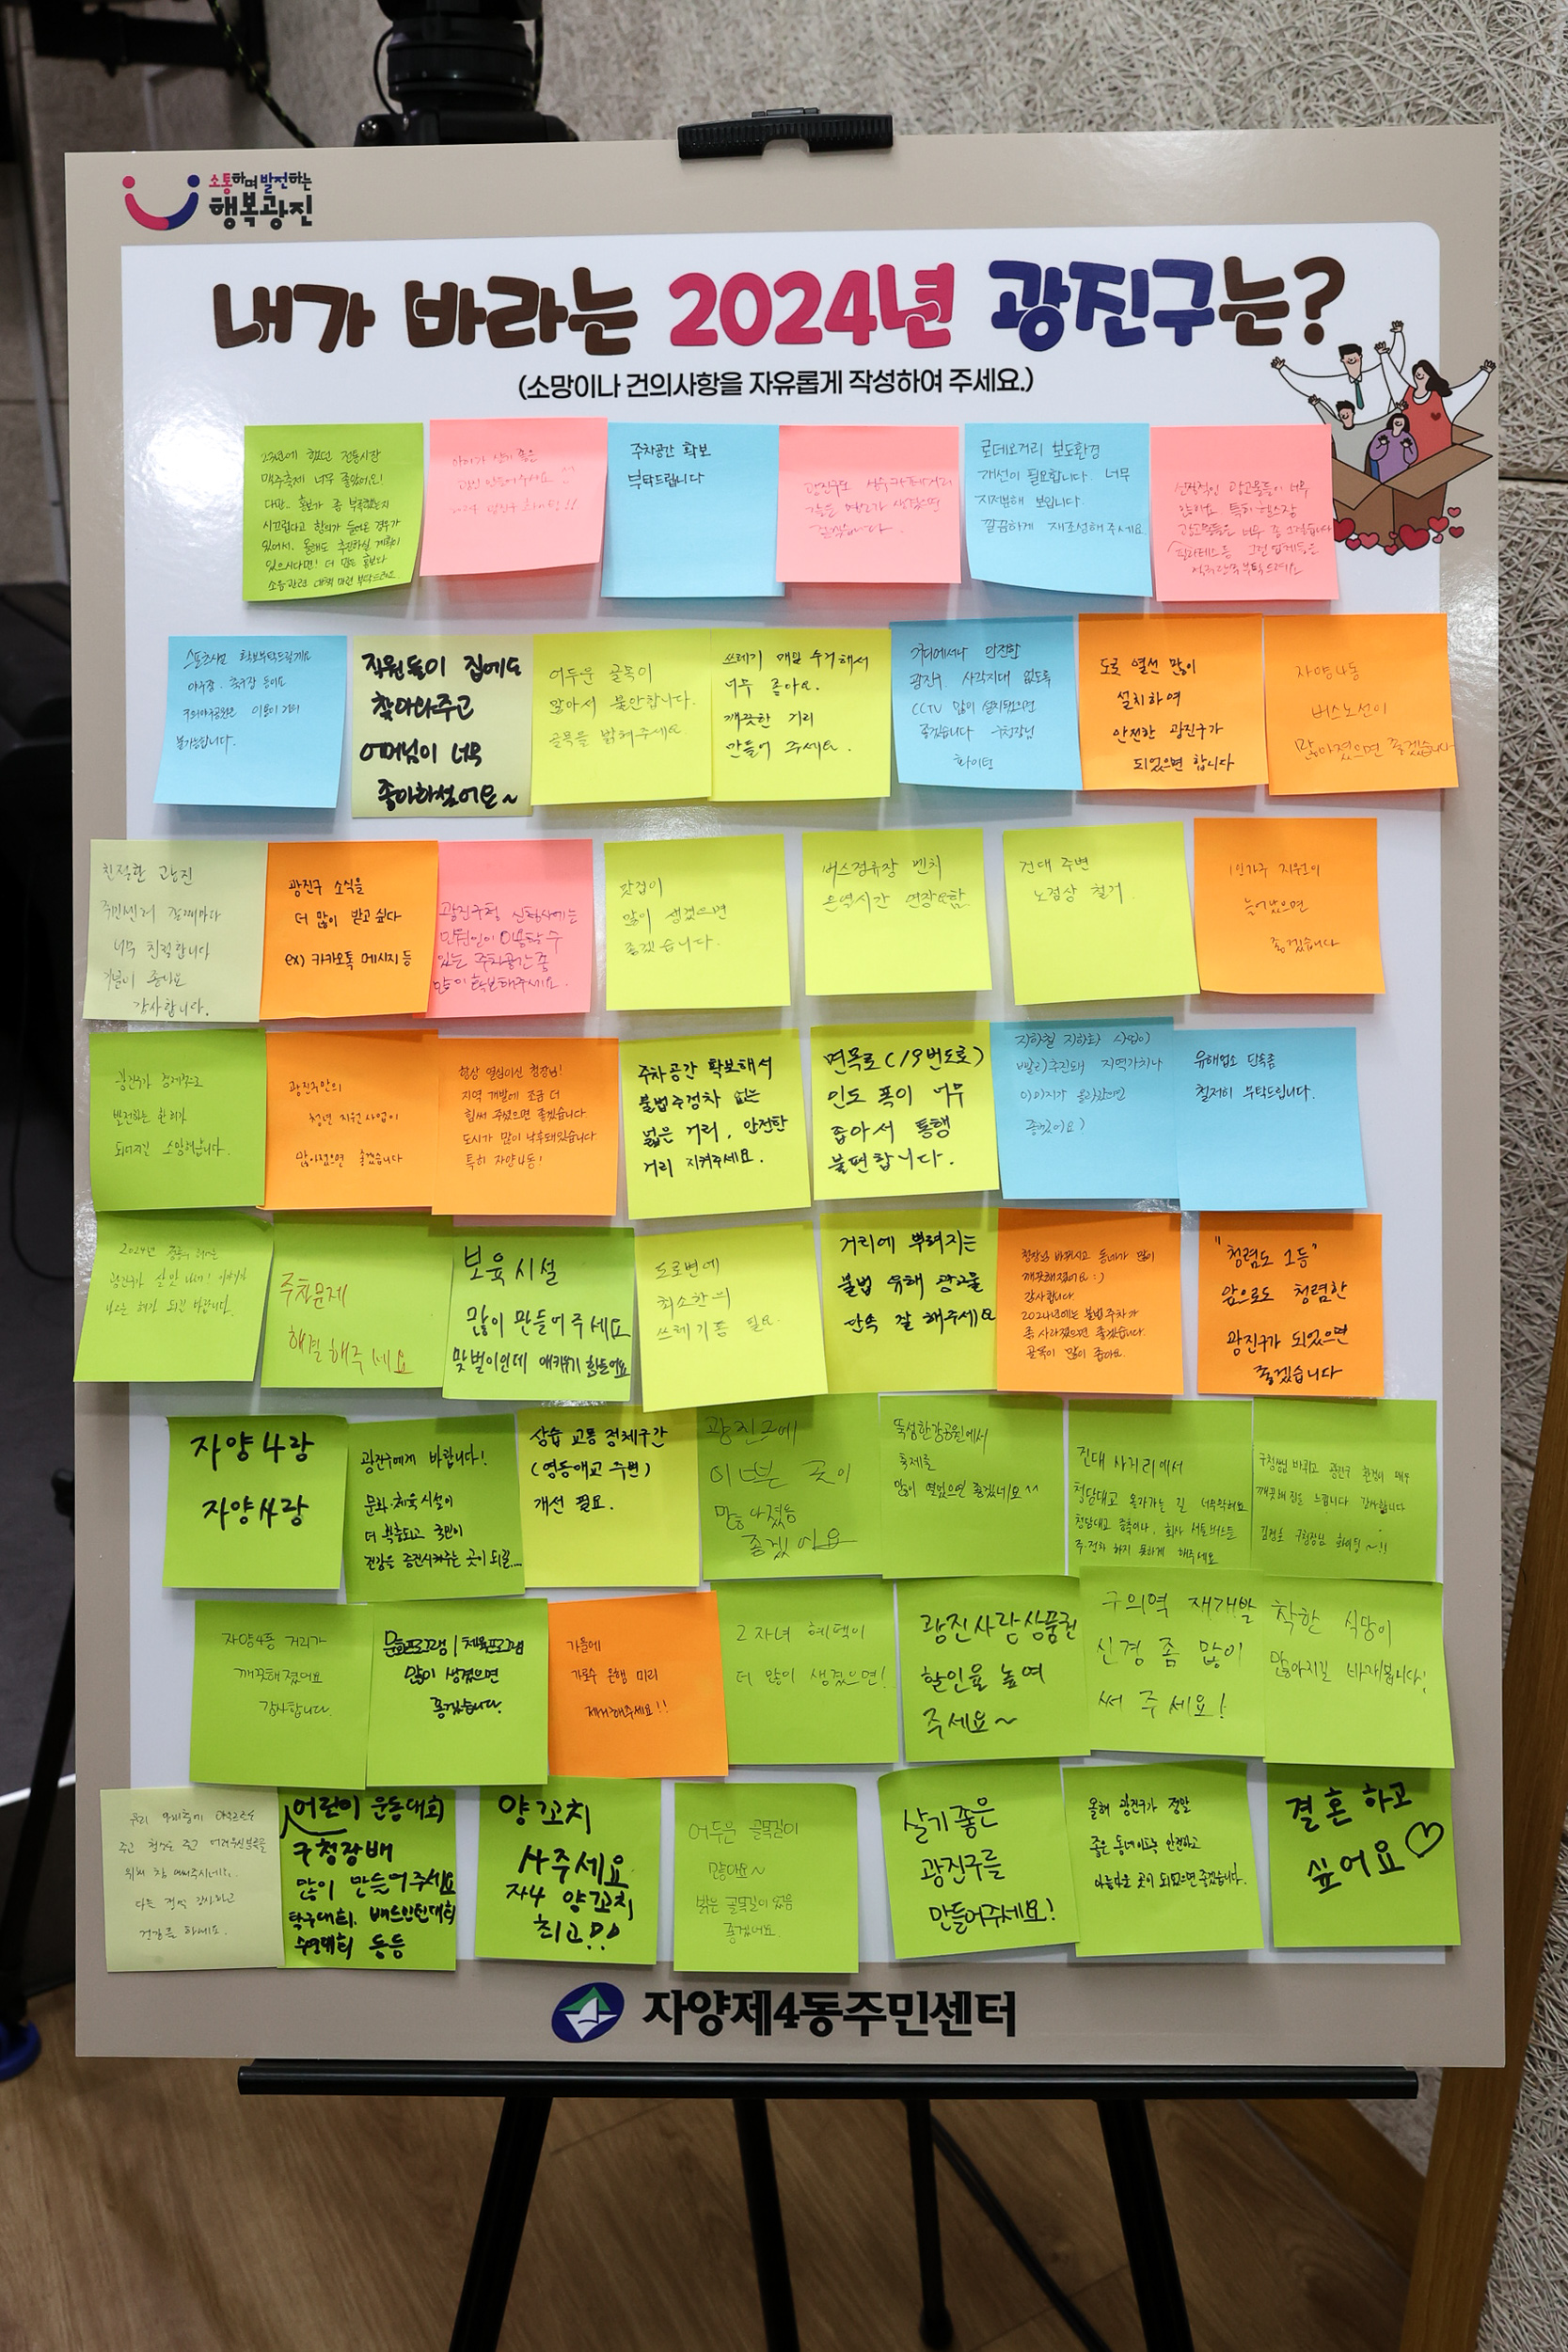 소통하며 발전하는
행복광진
내가 바라는 2024년 광진구는?
(소망이나 건의사항을 자유롭게 작성하여 주세요.)
23년에 했던 전통시장
맥주축제 너무 좋았어요!
다만.. 홍보가 좀 부족했는지
시끄럽다고 항의가 들어온 경우가
있어서, 올해도 추진하실 계획이
있으시다면! 더 많은 홍보와
소음관련 대책 마련 부탁드려요
아이가 살기 좋은
광진 만들어주세요 ^^
2024 광진구 화이팅!!
주차공간 확보
부탁드립니다
광진구도 성수카페거리
같은 명소가 생겼으면
좋겠습니다.
로데오거리 보도환경
개선이 필요합니다. 너무
지저분해 보입니다.
깔끔하게 재조성해주세요.
선정적인 광고물들이 너무
많아요 특히 헬스장
광고물들은 너무 좀 그렇습니다
필라테스 등 그런 업체들은
부탁드려요
스포츠시설 확보부탁드릴게요
야구장. 축구장 등이요
구의야구공원은 이용이 거의
불가능합니다.
직원들이 집에도
찾아와주고
어머님이 너무
좋아하셨어요~
어두운 골목이
많아서 불안합니다.
골목을 밝혀주세요
쓰레기 매일 수거해서
너무 좋아요.
깨끗한 거리
만들어 주세요.
어디에서나 안전한
광진구. 사각지대 없도록
CCTV 많이 설치됐으면
좋겠습니다 구청장님
화이팅
도로 열선 많이
설치하여
안전한 광진구가
되었으면 합니다
자양4동
버스노선이
많아졌으면 좋겠습니다
친절한 광진
주민센터 갈때마다
너무 친절합니다
기분이 좋아요
감사합니다.
광진구 소식을
더 많이 받고 싶다
ex) 카카오톡 메시지 등
광진구청 신청사에는
민원인이 이용할 수
있는 주차공간 좀
많이 확보해주세요.
맛집이
많이 생겼으면
좋겠습니다.
버스정류장 벤치
온열시간 연장요함
건대 주변
노점상 철거
1인가구 지원이
늘어났으면
좋겠습니다
광진구가 경제적으로
발전하는 한해가
되어지길 소망해봅니다.
광진구만의
청년 지원사업이
많아졌으면 좋겠습니다
항상 열심이신 청장님!
지역 개발에 조금 더
힘써 주셨으면 좋겠습니다
도시가 많이 낙후돼있습니다
특히 자양4동!
주차공간 확보해서
불법주정차 없는
넓은 거리, 안전한
거리 지켜주세요.
면목로(19번도로)
인도 폭이 너무
좁아서 통행
불편합니다.
지하철 지하화 사업이
빨리 추진돼 지역가치나
이미지가 올라갔으면
좋겠어요)
유해업소 단속좀
철저히 부탁드립니다.
2024년
광진구가 살맛 나게!
되길 바랍니다.
주차문제
해결해주세요
보육시설
많이 만들어주세요
맞벌이인데 애키우기 힘들어요
도로변에
최소한의
쓰레기통 필요.
거리에 뿌려지는
불법 유해 광고물
단속 잘 해주세요
청장님 바뀌시고 동네가 많이
깨끗해졌어요 :)
감사합니다.
2024년에는 불법주차가
좀 사라졌으면 좋겠습니다.
골목이 많이 좁아요.
"청렴도 1등"
앞으로도 청렴한
광진구가 되었으면
좋겠습니다
자양4랑
자양사랑
광진구에게 바랍니다!
문화·체육시설이
더 확충되고 구민이
건강을 증진시켜주는 곳이 되길...
상습 교통 정체구간
(영동대교 주변)
개선 필요.
광진구에
이쁜 곳이
많아졌음
좋겠어요
뚝섬한강공원에서
축제를
많이 열었으면 좋겠네요^^
건대 사거리에서
청담대교 올라가는 길 너무막혀요
청담대교 증축이나, 회사 셔틀버스들
주·정차 하지 못하게 해주세요
구청장님 바뀌고 광진구 환경이 매우
깨끗해짐을 느낍니다 감사합니다
김경호 구청장님 화이팅~!!
자양4동 거리가
깨끗해졌어요
감사합니다.
문화프로그램 / 체육프로그램
많이 생겼으면
좋겠습니다.
가을에
가로수 은행 미리
제거해주세요!!
2자녀 혜택이
더 많이 생겼으면!
광진사랑상품권
할인율 높여
주세요~
구의역 재개발
신경 좀 많이
써 주세요!
착한 식당이
많아지길 바래봅니다!
다들 정말 감사하고
건강들 하세요.
어린이 운동대회
구청장배
많이 만들어주세요
탁구대회, 배드민턴대회
수영대회 등등
양꼬치
사주세요
자4 양꼬치
최고!!
어두운 골목길이
많아요~
밝은 골목길이 있음
좋겠어요.
살기좋은
광진구를
만들어주세요!
올해 광진구가 정말
좋은 동네이도록 안전하고
아늑한 곳이 되었으면 좋겠습니다.
결혼하고
싶어요♡
자양제4동주민센터